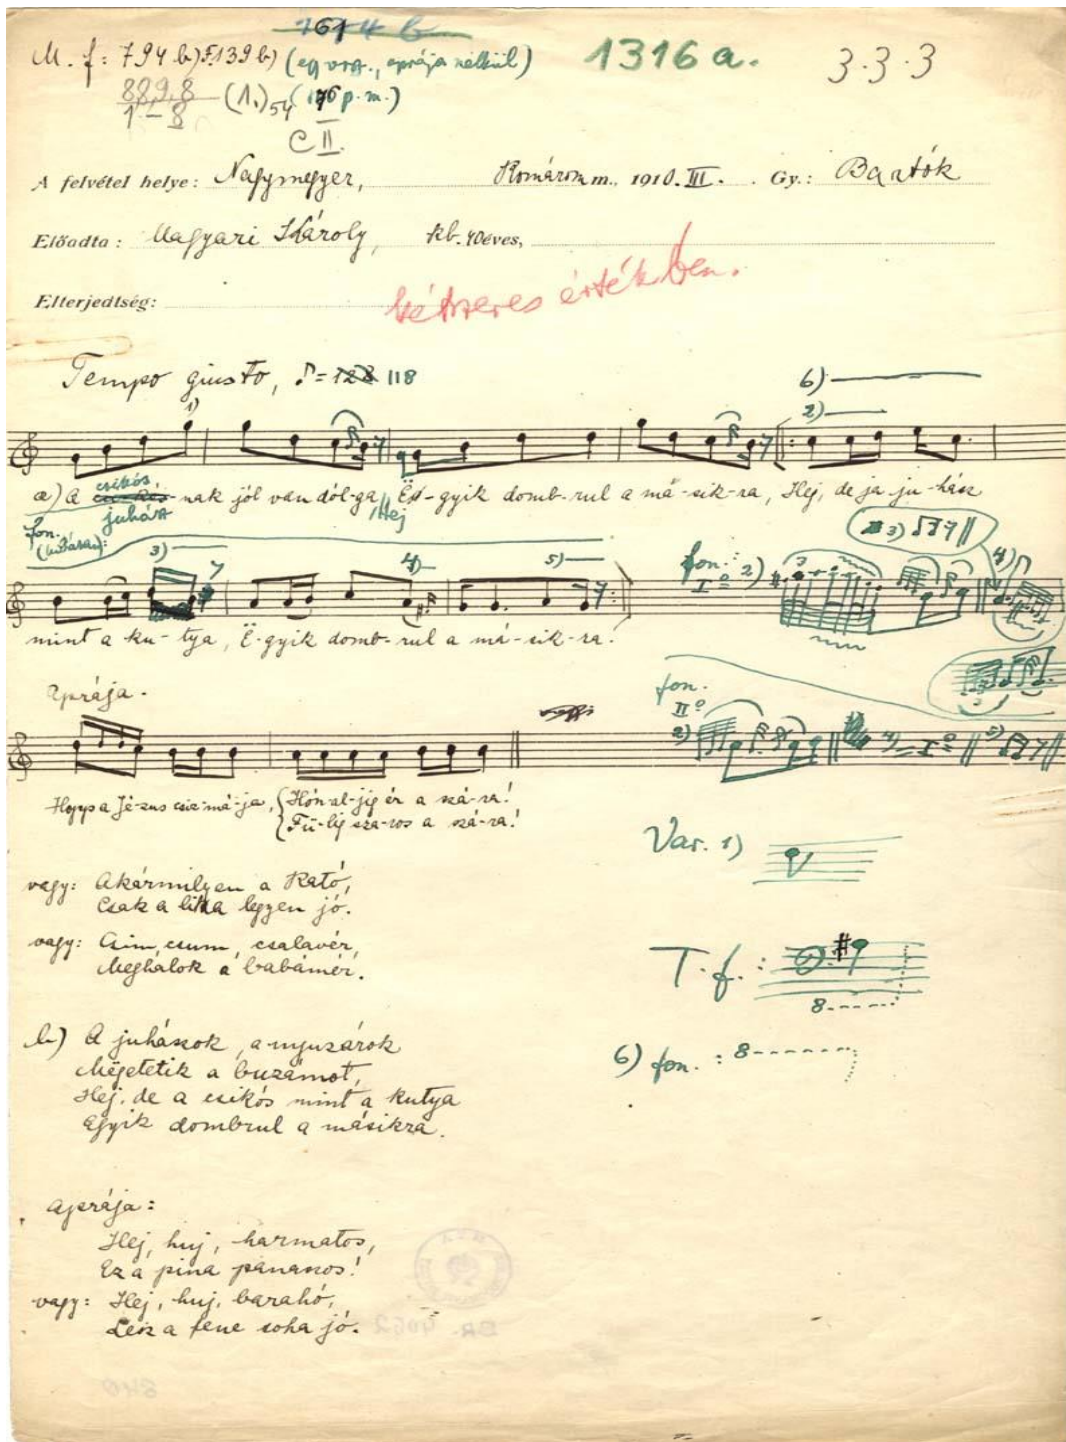 7614 b
M. f: 794 b) F. 139 b) (egy org., aprája nélkül) 1316 a. 3.3.3
889,8 (1.) 54 (176 p.m.)
1-8
C II.
A felvétel helye: Nagymegyer, Komárom m., 1910. III. Gy.: Bartók
Előadta: Magyari Károly, kb. 40 éves,
Elterjedtség:
kétszeres értékben.
Tempo giusto, ♪= 128 118
6)
1) 2)
csikós
a) A -nak jól van dól-ga, Ë-gyik domb-rul a má-sik-ra, Hej, de ja ju-hász
juhász Hej
fon. 3) 4) 5) fon.: I° 2) 3) 4)
mint a ku-tya, Ë-gyik domb-rul a má-sik-ra!
aprája.
fon. II° 2) 4) = I° 5)
Hopp a Jé-zus csiz-má-ja, Hón-al-jig ér a szá-ra!
Fü-lig sza-ros a szá-ra!
Var. 1)
vagy: Akármilyen a Kató,
Csak a lika légyen jó.
vagy: Csim, csum, csalavér,
Meghalok a babámér.
T. f.:
8
b) A juhászok, a nyuzárok
Mëgetetik a buzámot,
Hej, de a csikós mint a kutya
Egyik dombrul a másikra.
6) fon.: 8
aprája:
Hej, huj, harmatos,
Ez a pina panaszos!
vagy: Hej, huj, barahó,
Lësz a fene soha jó.